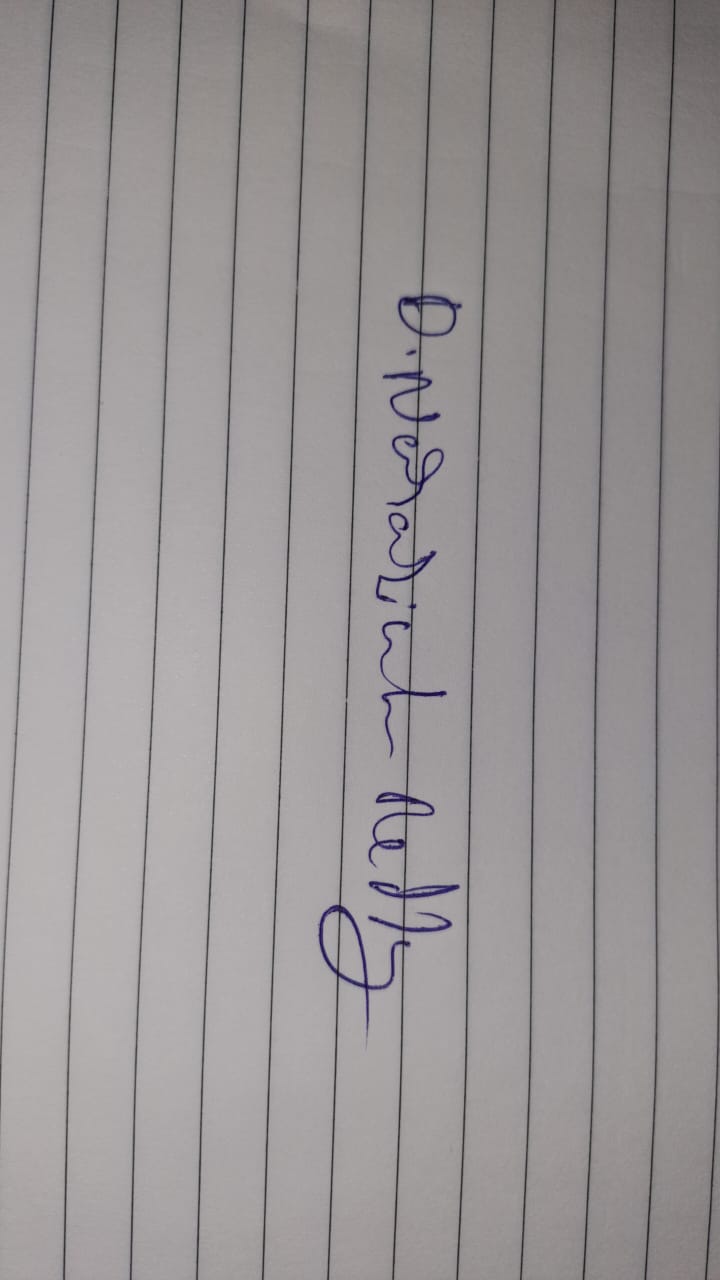 D. Narasimha Reddy